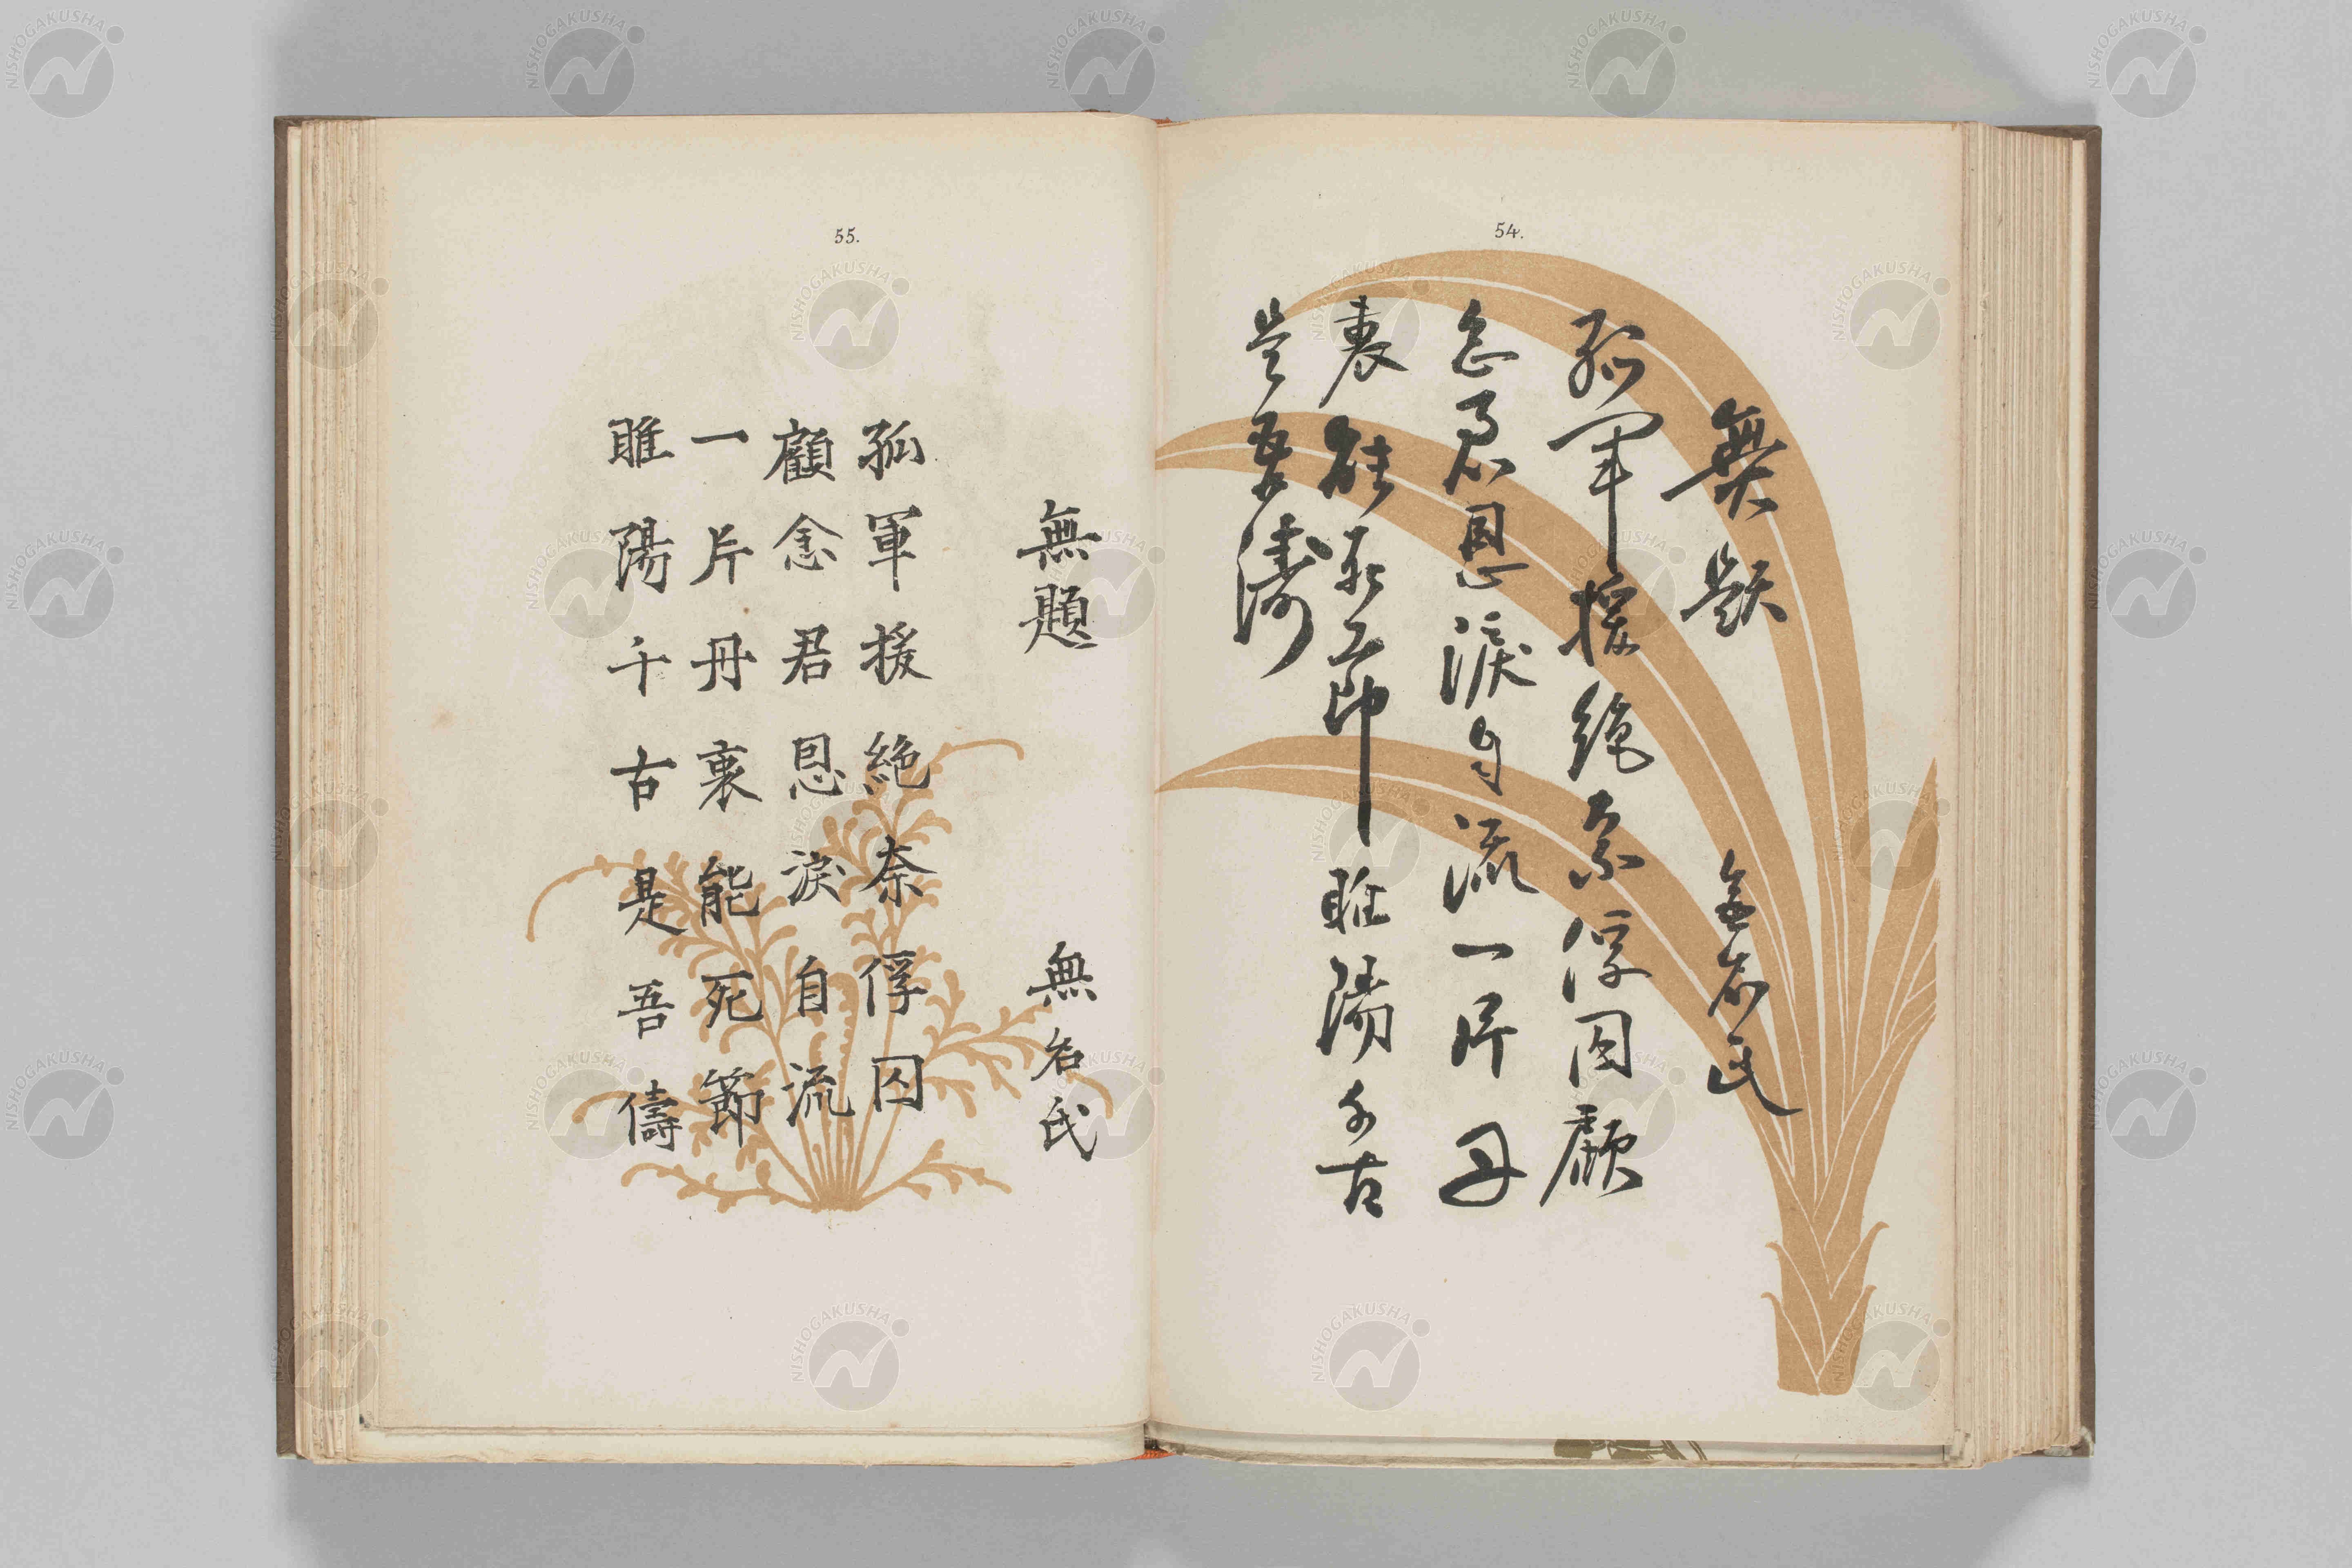 54.
無題 無名氏
孤軍援絶奈俘囚顧
念君恩淚自流一片丹
衷能死節睢陽千古
是吾儔
55.
無題 無名氏
孤軍援絶奈俘囚
顧念君恩淚自流
一片丹衷能死節
睢陽千古是吾儔
NISHOGAKUSHA